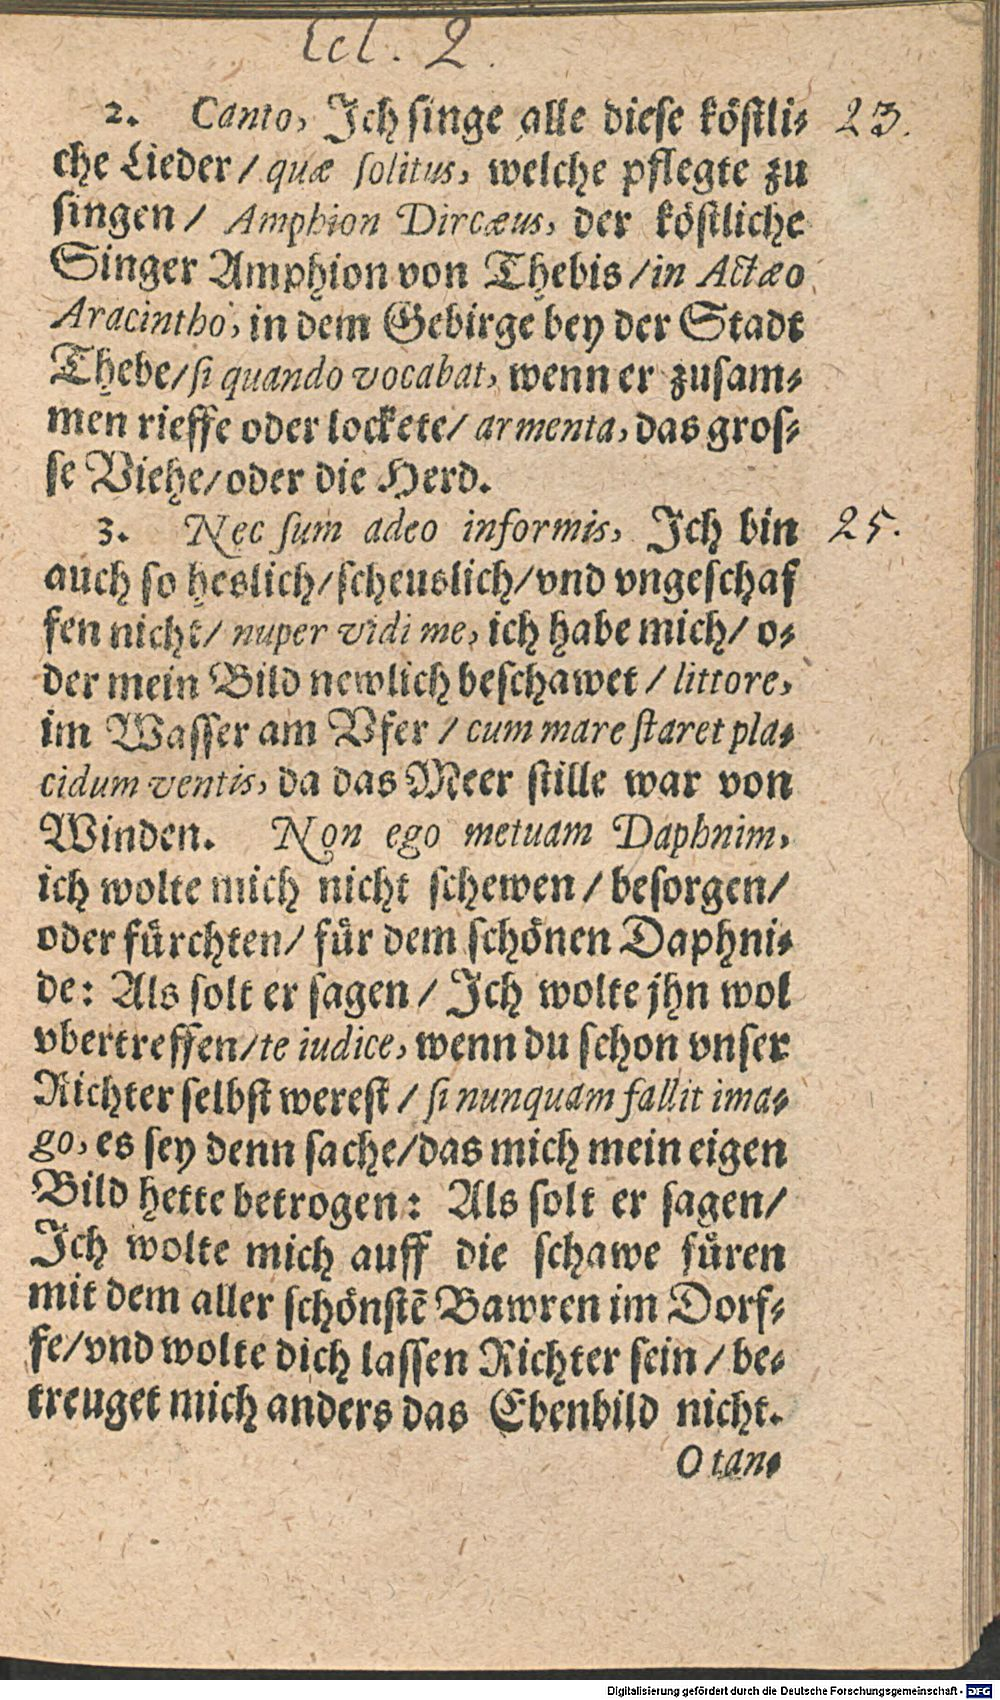 Ecl. 2.
2. Canto, Ich singe alle diese köstli- 23.
che Lieder / quæ solitus, welche pflegte zu
singen / Amphion Dircæus, der köstliche
Singer Amphion von Thebis / in Actæo
Aracintho, in dem Gebirge bey der Stadt
Thebe / si quando vocabat, wenn er zusam-
men rieffe oder lockete / armenta, das gros-
se Viehe / oder die Herd.
3. Nec sum adeo informis, Ich bin 25.
auch so heslich / scheuslich / vnd vngeschaf
fen nicht / nuper vidi me, ich habe mich / o-
der mein Bild newlich beschawet / littore,
im Wasser am Vfer / cum mare staret pla-
cidum ventis, da das Meer stille war von
Winden. Non ego metuam Daphnim,
ich wolte mich nicht schewen / besorgen /
oder fürchten / für dem schönen Daphni-
de: Als solt er sagen / Ich wolte jhn wol
vbertreffen / te iudice, wenn du schon vnser
Richter selbst werest / si nunquam fallit ima-
go, es sey denn sache / das mich mein eigen
Bild hette betrogen: Als solt er sagen /
Ich wolte mich auff die schawe füren
mit dem aller schönstē Bawren im Dorf-
fe / vnd wolte dich lassen Richter sein / be-
treuget mich anders das Ebenbild nicht.
O tan-
Digitalisierung gefördert durch die Deutsche Forschungsgemeinschaft - DFG